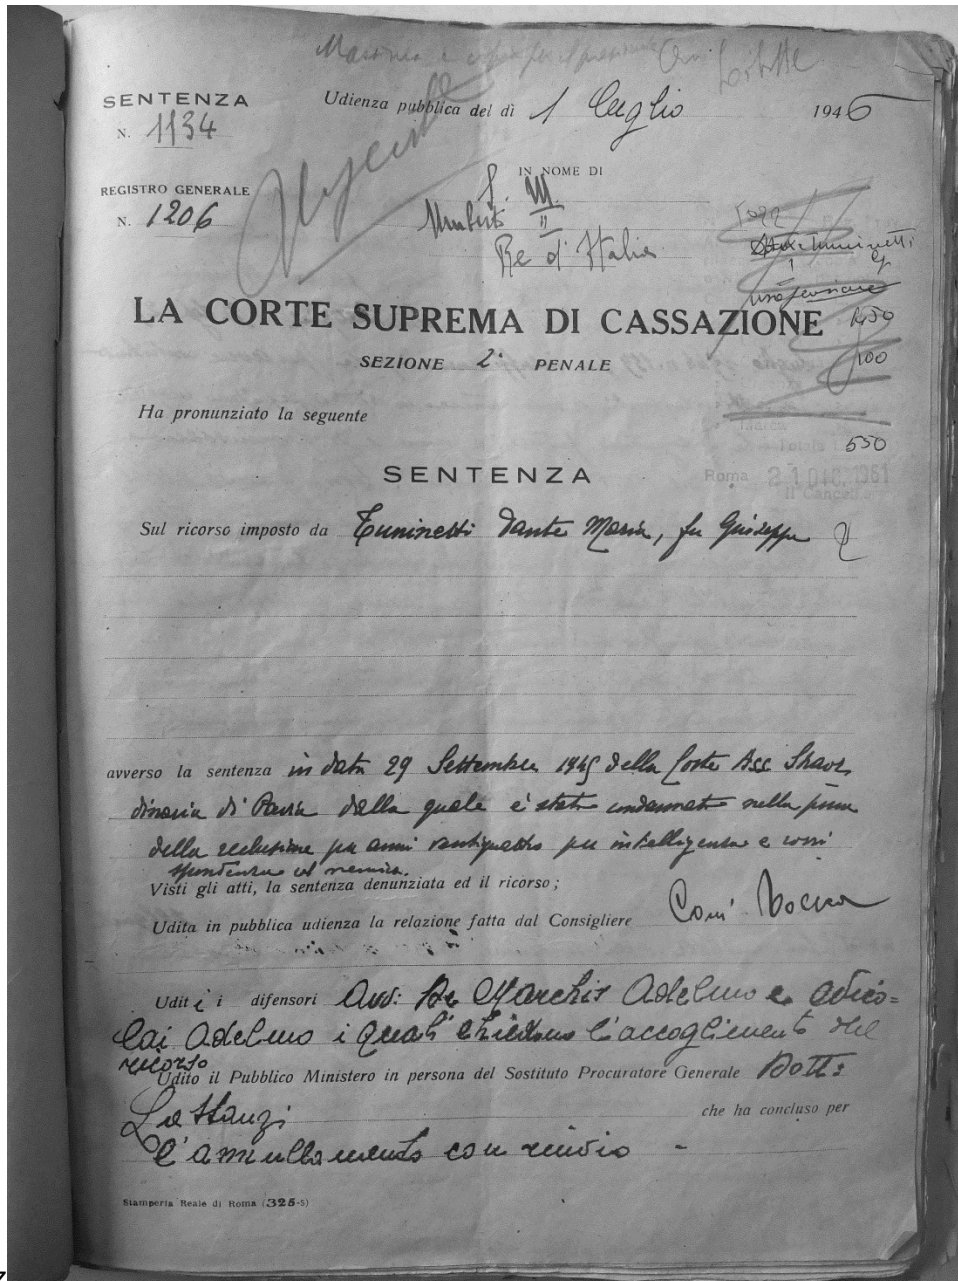 SENTENZA
N. 1134
Udienza pubblica del dì 1 Luglio 1946
REGISTRO GENERALE
N. 1206
IN NOME DI
S. M.
Umberto II
Re d'Italia
LA CORTE SUPREMA DI CASSAZIONE
SEZIONE 2ª PENALE
450
100
550
Ha pronunziato la seguente
Roma 21 DIC. 1961
Il Cancell
SENTENZA
Sul ricorso imposto da Tuninetti Dante Maria, fu Giuseppe
avverso la sentenza in data 29 Settembre 1945 della Corte Ass Straor
dinaria di Pavia dalla quale è stato condannato nella pena
della reclusione per anni ventiquattro per intelligenza e corri
spondenza col nemico.
Visti gli atti, la sentenza denunziata ed il ricorso;
Udita in pubblica udienza la relazione fatta dal Consigliere
Uditi i difensori Avv: De Marchis Adelmo e
Adelmo i quali chiedono l'accoglimento del
ricorso
Udito il Pubblico Ministero in persona del Sostituto Procuratore Generale Dott:
che ha concluso per
l'annullamento con rinvio -
Stamperia Reale di Roma (325-5)